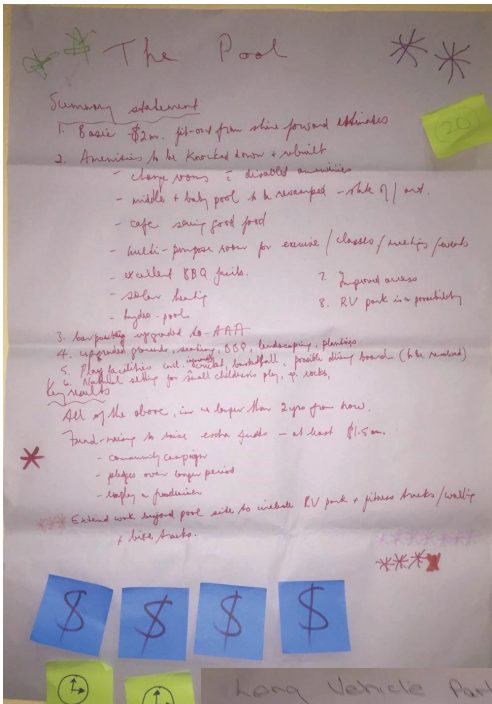 The Pool
Summary statement
(20)
1. Basic $2m. fit-out from shire forward estimates
2. Amenities to be knocked down + rebuilt
- change rooms c disabled amenities
- middle + baby pool to be revamped - state of / art.
- cafe serving good food
- multi-purpose room for exercise / classes / meetings / events
- excellent BBQ facils.
- solar heating
- hydro-pool
7. Improved access
8. RV park is a possibility
3. upgraded to AAA
4. upgraded grounds, seating, BBQ, landscaping, plantings
5. Play facilities incl. basketball, possible diving board (to be resolved)
6. Natural setting for small children's play, eg. rocks,
Key results
All of the above, in no longer than 2 yrs from now.
Fund-raising to raise extra funds - at least $1.5m.
- community campaign
- pledges over longer period
- employ a fundraiser
Extend work beyond pool side to include RV park + fitness tracks / walking
+ bike tracks.
$ $ $ $
Long Vehicle Park